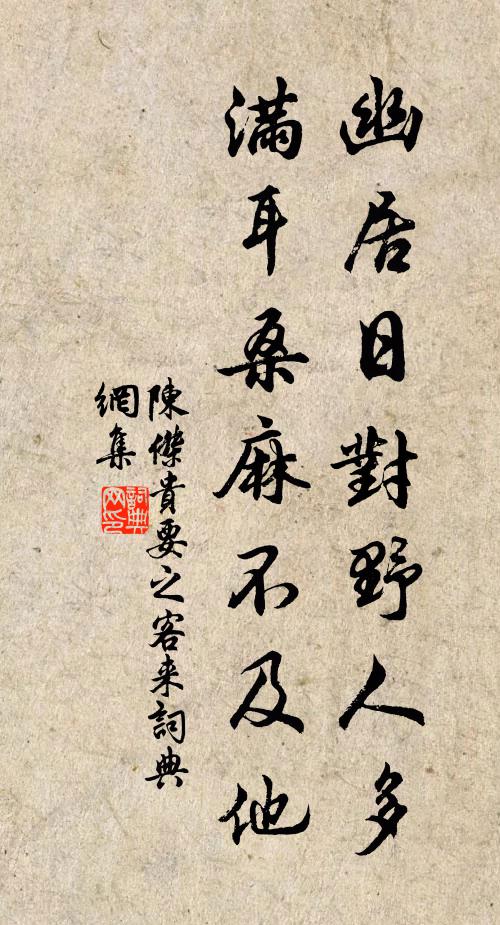 幽居日對野人多
滿耳桑麻不及他
陳傑貴要之客来詞典
網集
詞典
网印